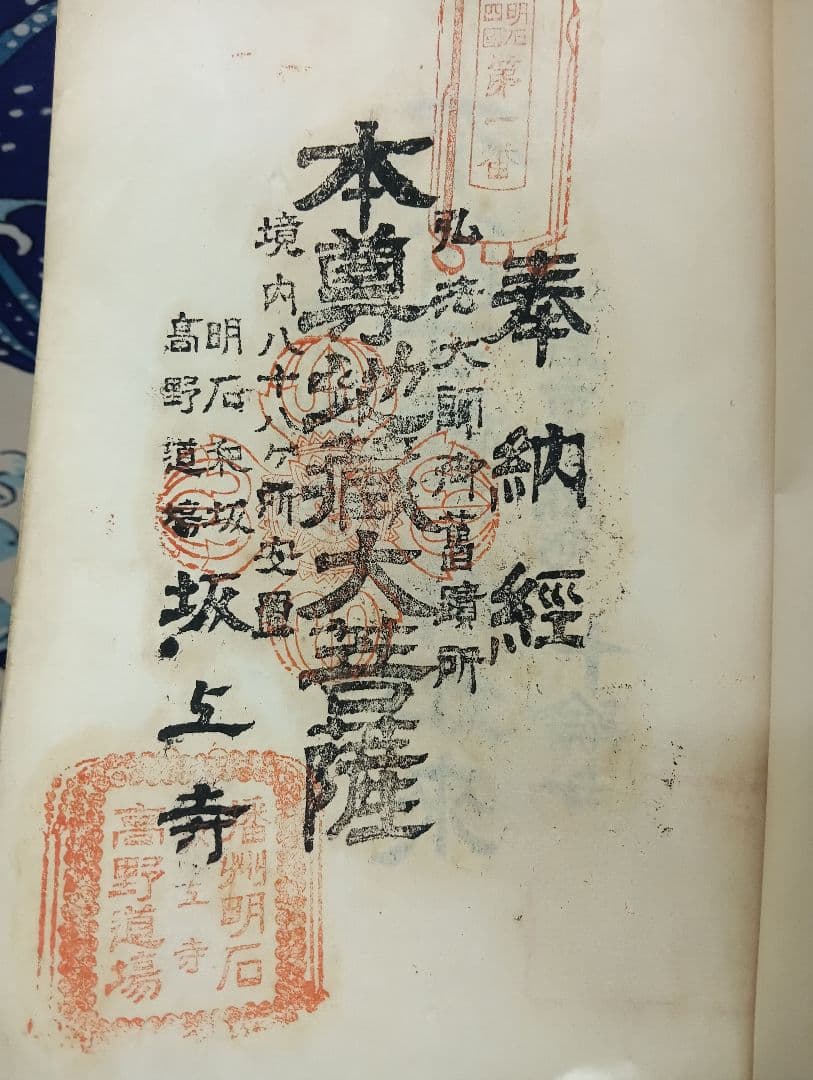 明石
四國
第一番
奉納經
弘法大師御舊蹟所
本尊地藏大菩薩
境内八十八ヶ所安置
明石和坂
高野道場
坂上寺
播州明石
坂上寺
高野道場